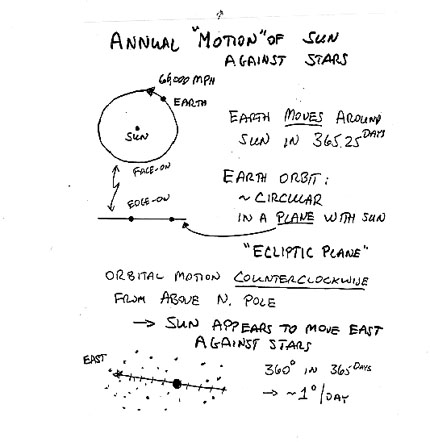 ANNUAL "MOTION" OF SUN
AGAINST STARS
66,000 MPH
EARTH
SUN
FACE-ON
EDGE-ON
EARTH MOVES AROUND
SUN IN 365.25 DAYS
EARTH ORBIT:
~ CIRCULAR
IN A PLANE WITH SUN
"ECLIPTIC PLANE"
ORBITAL MOTION COUNTERCLOCKWISE
FROM ABOVE N. POLE
→ SUN APPEARS TO MOVE EAST
AGAINST STARS
EAST
360° IN 365 DAYS
→ ~1°/DAY